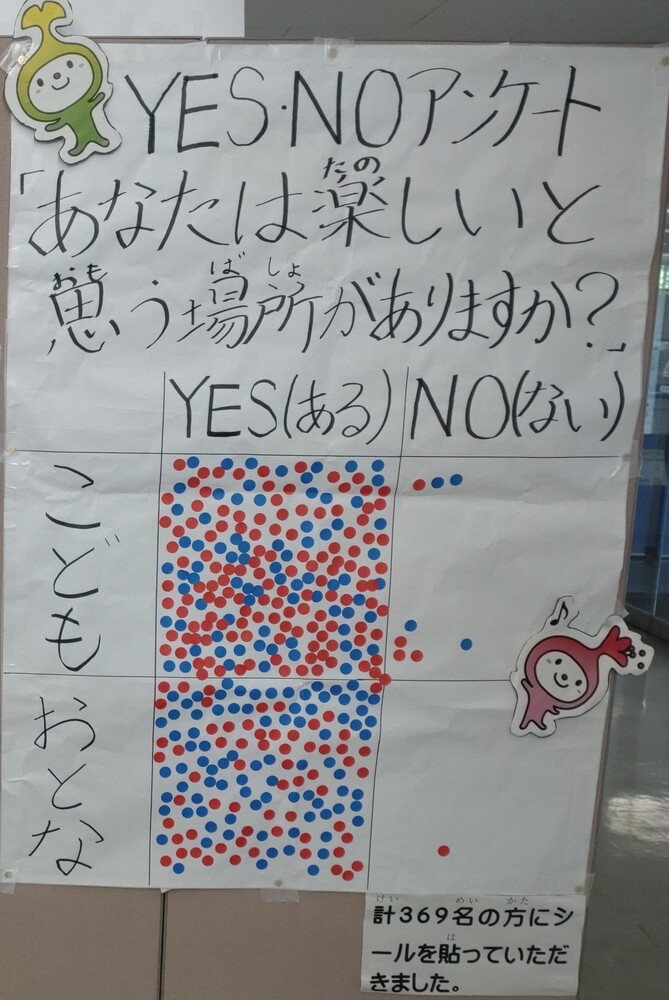 YES・NOアンケート
たの
「あなたは楽しいと
おも ば しょ
思う場所がありますか?」
YES(ある) NO(ない)
こども
おとな
けい めい かた
計369名の方にシ
は
ールを貼っていただ
きました。